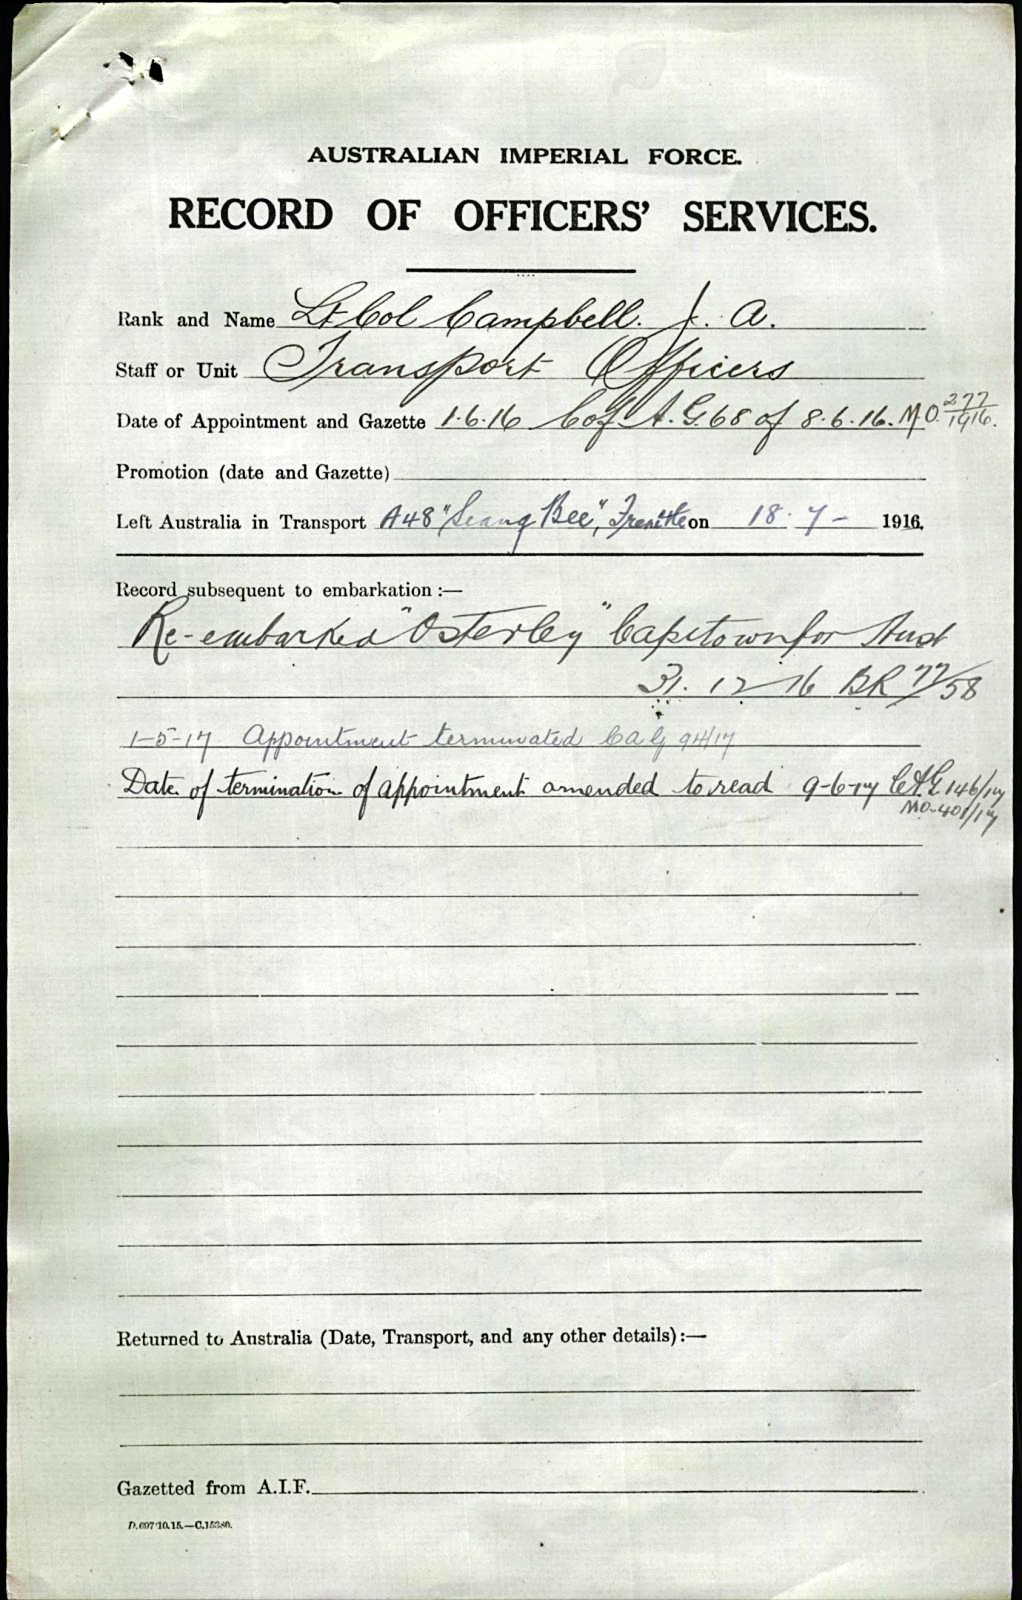 AUSTRALIAN IMPERIAL FORCE.
RECORD OF OFFICERS' SERVICES.
Rank and Name Lt Col Campbell. J. A.
Staff or Unit Transport Officers
Date of Appointment and Gazette 1.6.16 C of A. G. 68 of 8.6.16. M.O. 277/1916.
Promotion (date and Gazette)
Left Australia in Transport A48 "Seang Bee", Fremtle on 18.7- 1916.
Record subsequent to embarkation:—
Re-embarked "Osterley" Capetown for Aust
31.12.16 BR 77/58
1-5-17 Appointment terminated C a G 94/17
Date of termination of appointment amended to read 9-6-17 C.A.G. 146/17
MO-401/17
Returned to Australia (Date, Transport, and any other details):—
Gazetted from A.I.F.
D.697/10.15.—C.15380.